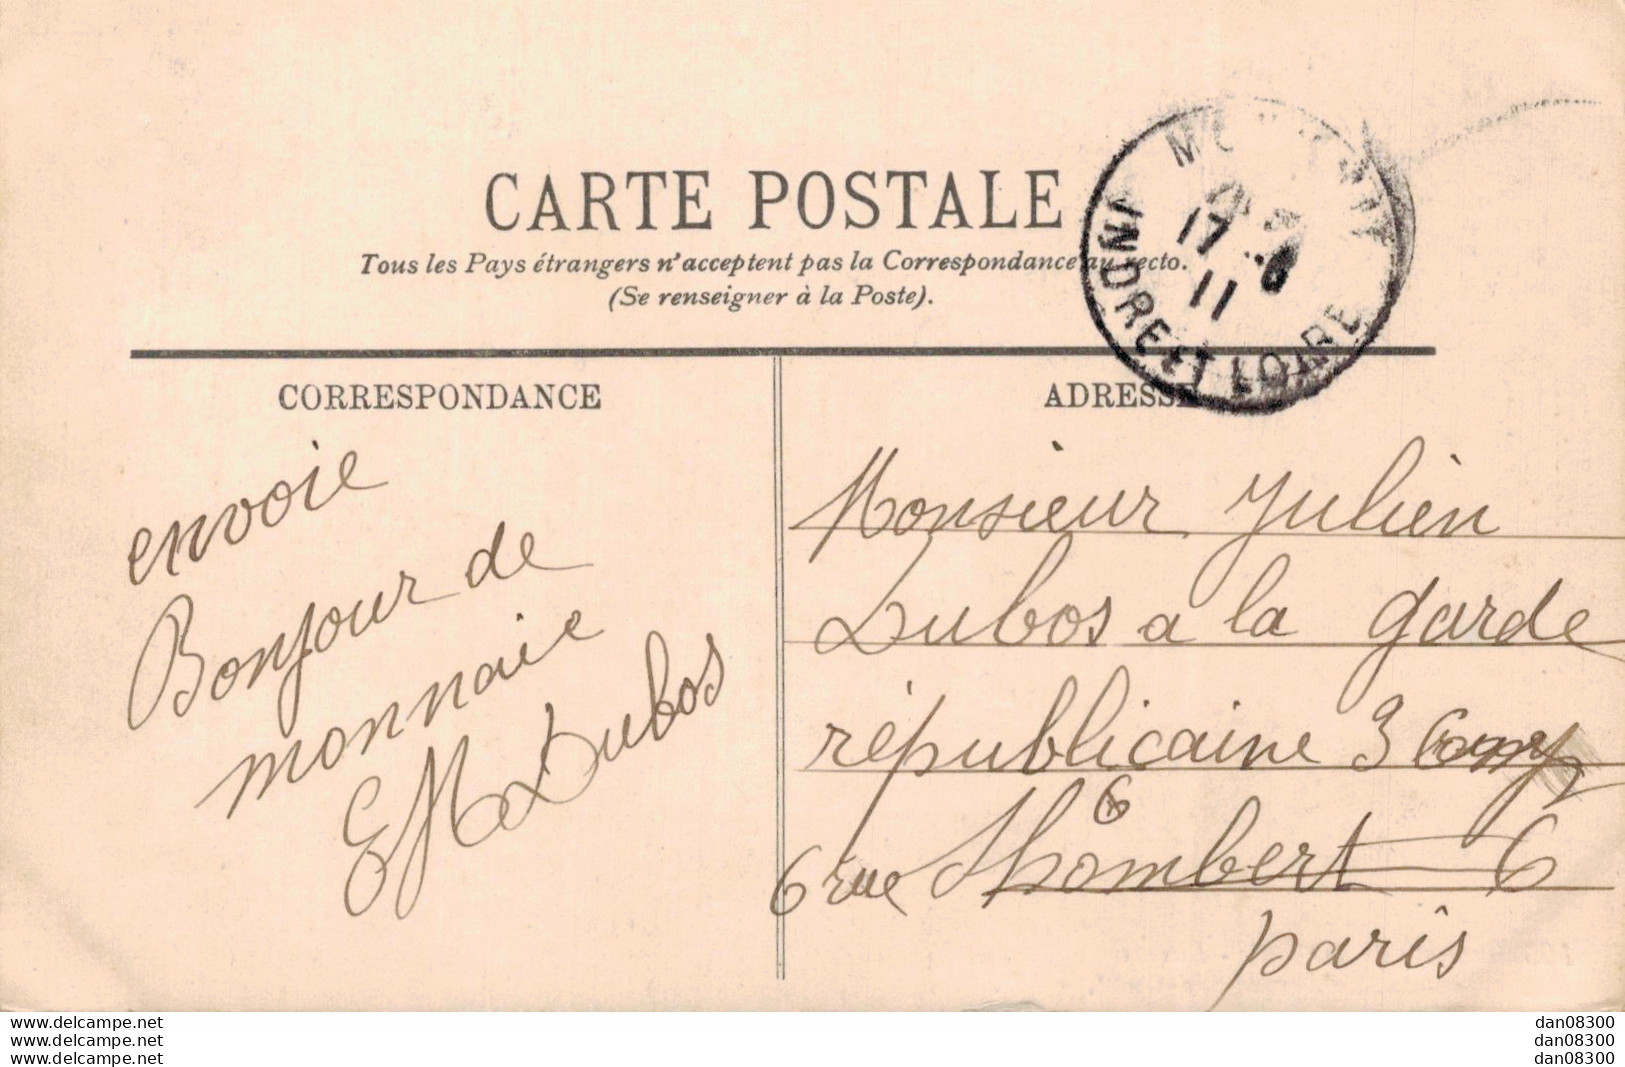 CARTE POSTALE
Tous les Pays étrangers n'acceptent pas la Correspondance au recto.
(Se renseigner à la Poste).
17 .6
11
INDRE ET LOIRE
CORRESPONDANCE
envoie
Bonjour de
monnaie
EM Dubos
ADRESSE
Monsieur Julien
Dubos a la garde
républicaine 3 Comp
6
6 rue Shombert 6
paris
www.delcampe.net
www.delcampe.net
www.delcampe.net
dan08300
dan08300
dan08300